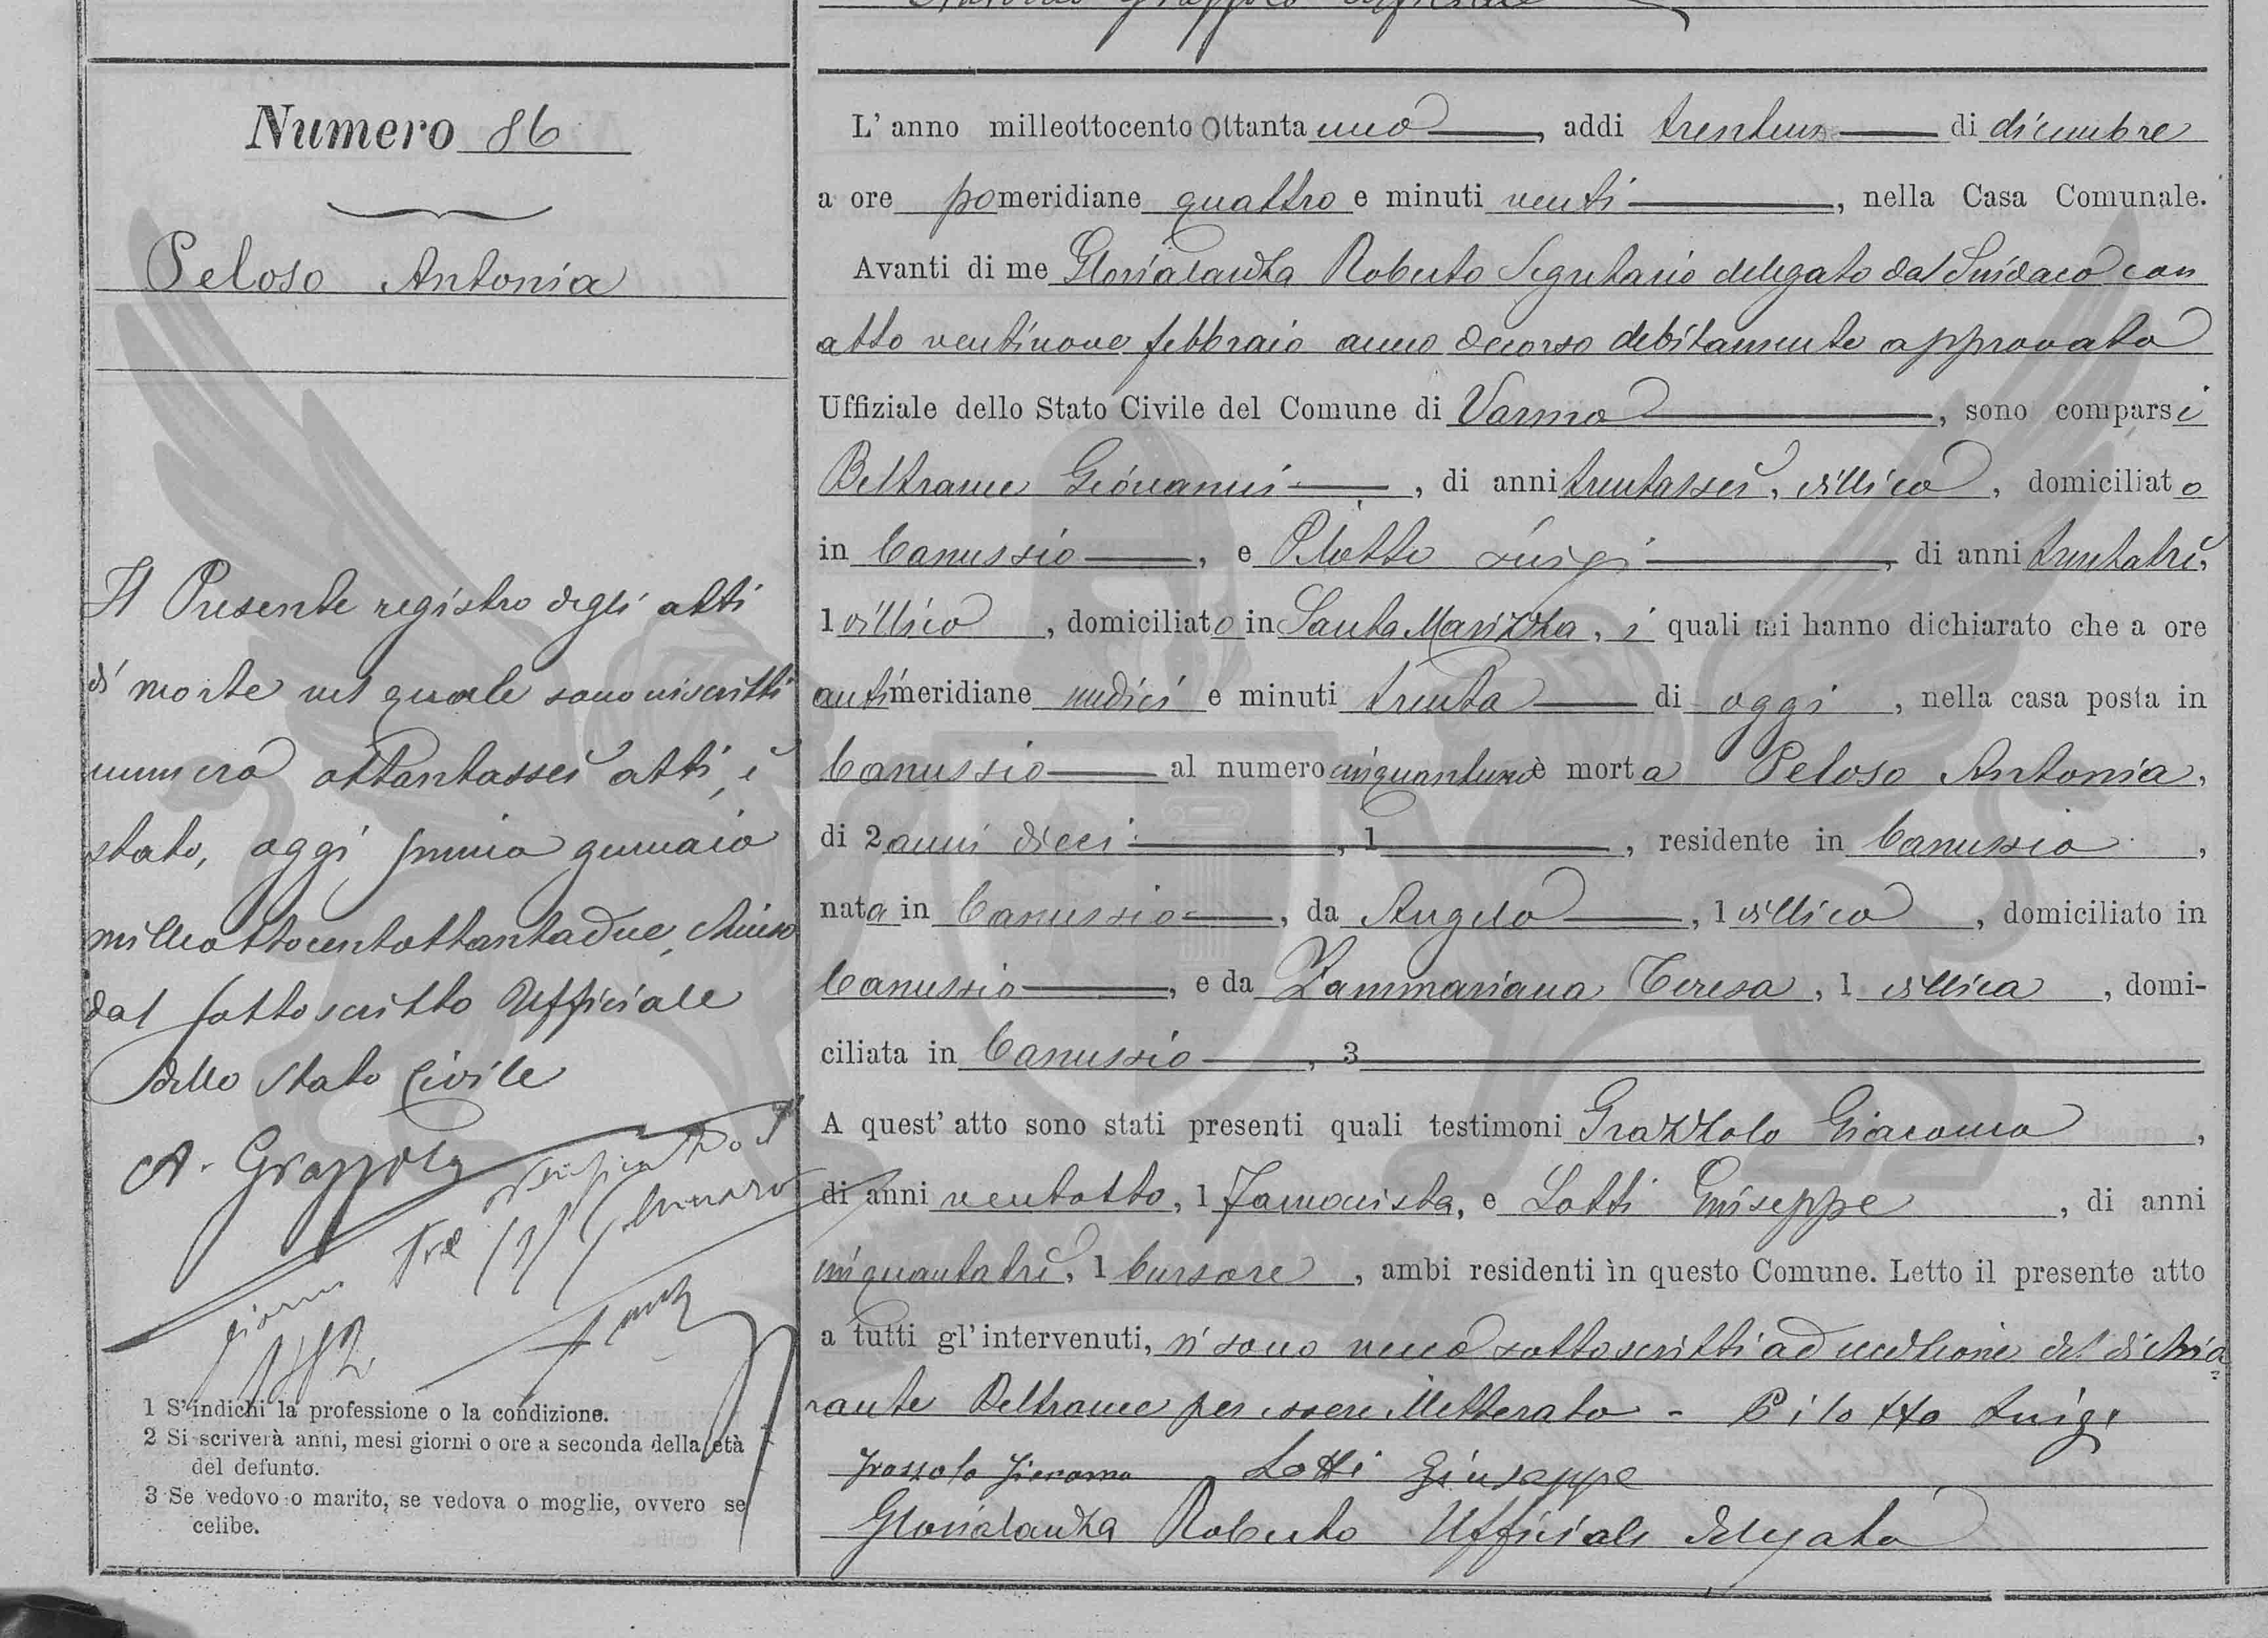 Numero 86
Peloso Antonia
Il Presente registro degli atti
di morte nel quale sono inscritti
numero ottantassei atti, è
stato, oggi primo gennaio
milleottocentottantadue, chiuso
dal sottoscritto Ufficiale
dello Stato Civile
A. Grazzolo
Verificato
tre (3) Gennaro
1882
1 S'indichi la professione o la condizione.
2 Si scriverà anni, mesi giorni o ore a seconda della età
del defunto.
3 Se vedovo o marito, se vedova o moglie, ovvero se
celibe.
L' anno milleottocento Ottanta uno, addi trentuno di dicembre
a ore pomeridiane quattro e minuti venti, nella Casa Comunale.
Avanti di me Glorialanza Roberto Segretario delegato dal Sindaco con
atto ventinove febbraio anno decorso debitamente approvato
Uffiziale dello Stato Civile del Comune di Varmo, sono comparsi
Beltrame Giovanni, di anni trentassei, villico, domiciliato
in Canussio, e Pilotto Luigi, di anni trentatrè,
1 villico, domiciliato in Santa Marizza, i quali mi hanno dichiarato che a ore
antimeridiane undici e minuti trenta di oggi, nella casa posta in
Canussio al numero cinquantuno è morta Peloso Antonia,
di 2 anni dieci, 1, residente in Canussio,
nata in Canussio, da Angelo, 1 villico, domiciliato in
Canussio, e da Zammariana Teresa, 1 villica, domi-
ciliata in Canussio, 3
A quest' atto sono stati presenti quali testimoni Grazzolo Giacomo,
di anni ventotto, 1 , e Lotti Giuseppe, di anni
cinquantatrè, 1 Cursore, ambi residenti in questo Comune. Letto il presente atto
a tutti gl' intervenuti, si sono meco sottoscritti ad eccezione del dichia
rante Beltrame per essere illetterato - Pilotto Luigi
Grazzolo Giacomo Lotti Giuseppe
Glorialanza Roberto Ufficiale delegato